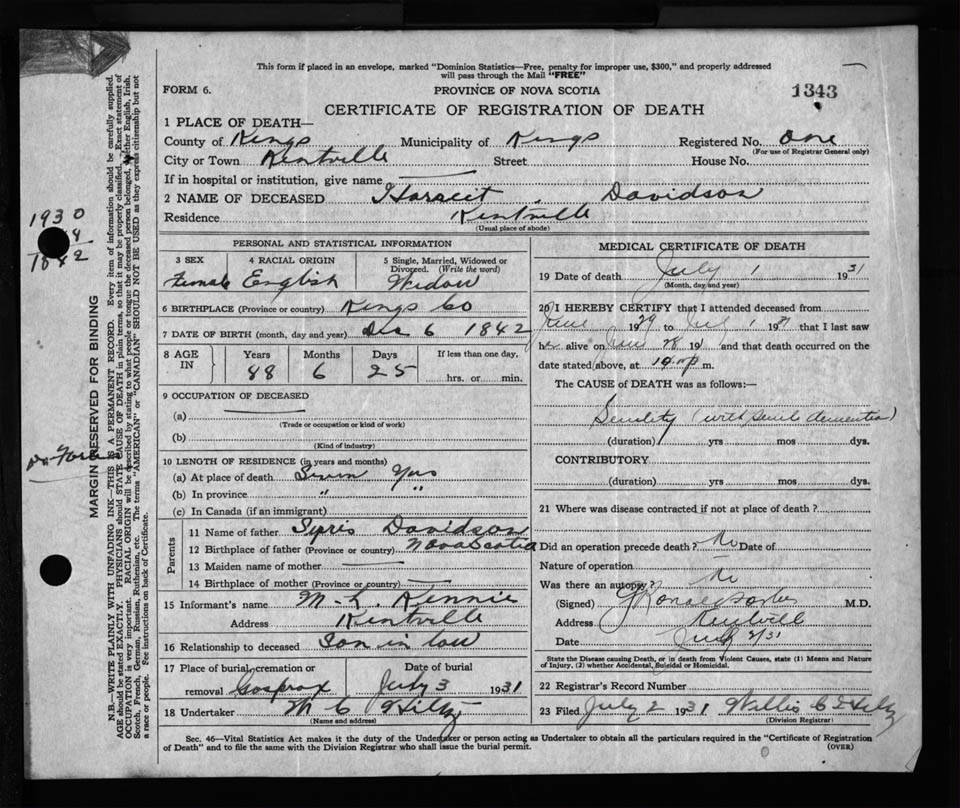 This form if placed in an envelope, marked "Dominion Statistics—Free, penalty for improper use, $300," and properly addressed
will pass through the Mail "FREE"
FORM 6.
PROVINCE OF NOVA SCOTIA
1343
CERTIFICATE OF REGISTRATION OF DEATH
1 PLACE OF DEATH—
County of Kings Municipality of Kings Registered No. One
(For use of Registrar General only)
City or Town Kentville Street House No.
If in hospital or institution, give name
2 NAME OF DECEASED Harriet Davidson
Residence Kentville
(Usual place of abode)
PERSONAL AND STATISTICAL INFORMATION
3 SEX 4 RACIAL ORIGIN 5 Single, Married, Widowed or
Divorced. (Write the word)
Female English Widow
6 BIRTHPLACE (Province or country) Kings Co
7 DATE OF BIRTH (month, day and year) Dec 6 1842
8 AGE IN Years Months Days If less than one day,
88 6 25 hrs. or min.
9 OCCUPATION OF DECEASED
(a)
(Trade or occupation or kind of work)
(b)
(Kind of industry)
10 LENGTH OF RESIDENCE (in years and months)
(a) At place of death Seven Yrs
(b) In province " "
(c) In Canada (if an immigrant)
Parents
11 Name of father Davidson
12 Birthplace of father (Province or country) Nova Scotia
13 Maiden name of mother
14 Birthplace of mother (Province or country)
15 Informant's name M. L. Rennie
Address Kentville
16 Relationship to deceased Son in law
17 Place of burial, cremation or Date of burial
removal July 3 1931
18 Undertaker W C Hiltz
(Name and address)
MEDICAL CERTIFICATE OF DEATH
19 Date of death July 1 1931
(Month, day and year)
20 I HEREBY CERTIFY that I attended deceased from
June 1929 to July 1 1931 that I last saw
h alive on June 28 19 and that death occurred on
date stated above, at m.
The CAUSE of DEATH was as follows:—
Senility (with senile dementia)
(duration) yrs mos dys.
CONTRIBUTORY
(duration) yrs mos dys.
21 Where was disease contracted if not at place of death?
Did an operation precede death? No Date of
Nature of operation
Was there an autopsy? No
(Signed) M.D.
Address Kentville
Date July 2/31
State the Disease causing Death, or in death from Violent Causes, state (1) Means and Nature
of Injury, (2) whether Accidental, Suicidal or Homicidal.
22 Registrar's Record Number
23 Filed July 2 1931 Willis C Hiltz
(Division Registrar)
Sec. 46—Vital Statistics Act makes it the duty of the Undertaker or person acting as Undertaker to obtain all the particulars required in the "Certificate of Registration
of Death" and to file the same with the Division Registrar who shall issue the burial permit.
(OVER)
1930
1842
MARGIN RESERVED FOR BINDING
N.B.—WRITE PLAINLY WITH UNFADING INK—THIS IS A PERMANENT RECORD. Every item of information should be carefully supplied.
AGE should be stated EXACTLY. PHYSICIANS should STATE CAUSE OF DEATH in plain terms, so that it may be properly classified. Exact statement of
OCCUPATION is very important. RACIAL ORIGIN will be described by stating to what people or tongue the deceased person belonged, whether English, Irish,
Scotch, French, German, Russian, Ruthenian, etc. The terms "AMERICAN" or "CANADIAN" SHOULD NOT BE USED as they express citizenship but not
a race or people. See instructions on back of Certificate.